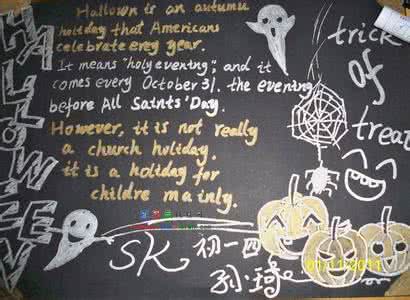 HALLOWEEV
Hallown is an autumn
holiday that Americans
celebrate erey year.
It means "holy evening", and it
comes every October 31, the evening
before All Saints' Day.
However, it is not really
a church holiday.
it is a holiday for
childre mainly.
trick
of
treat
SK 初一四
孙琦
01/11/2011